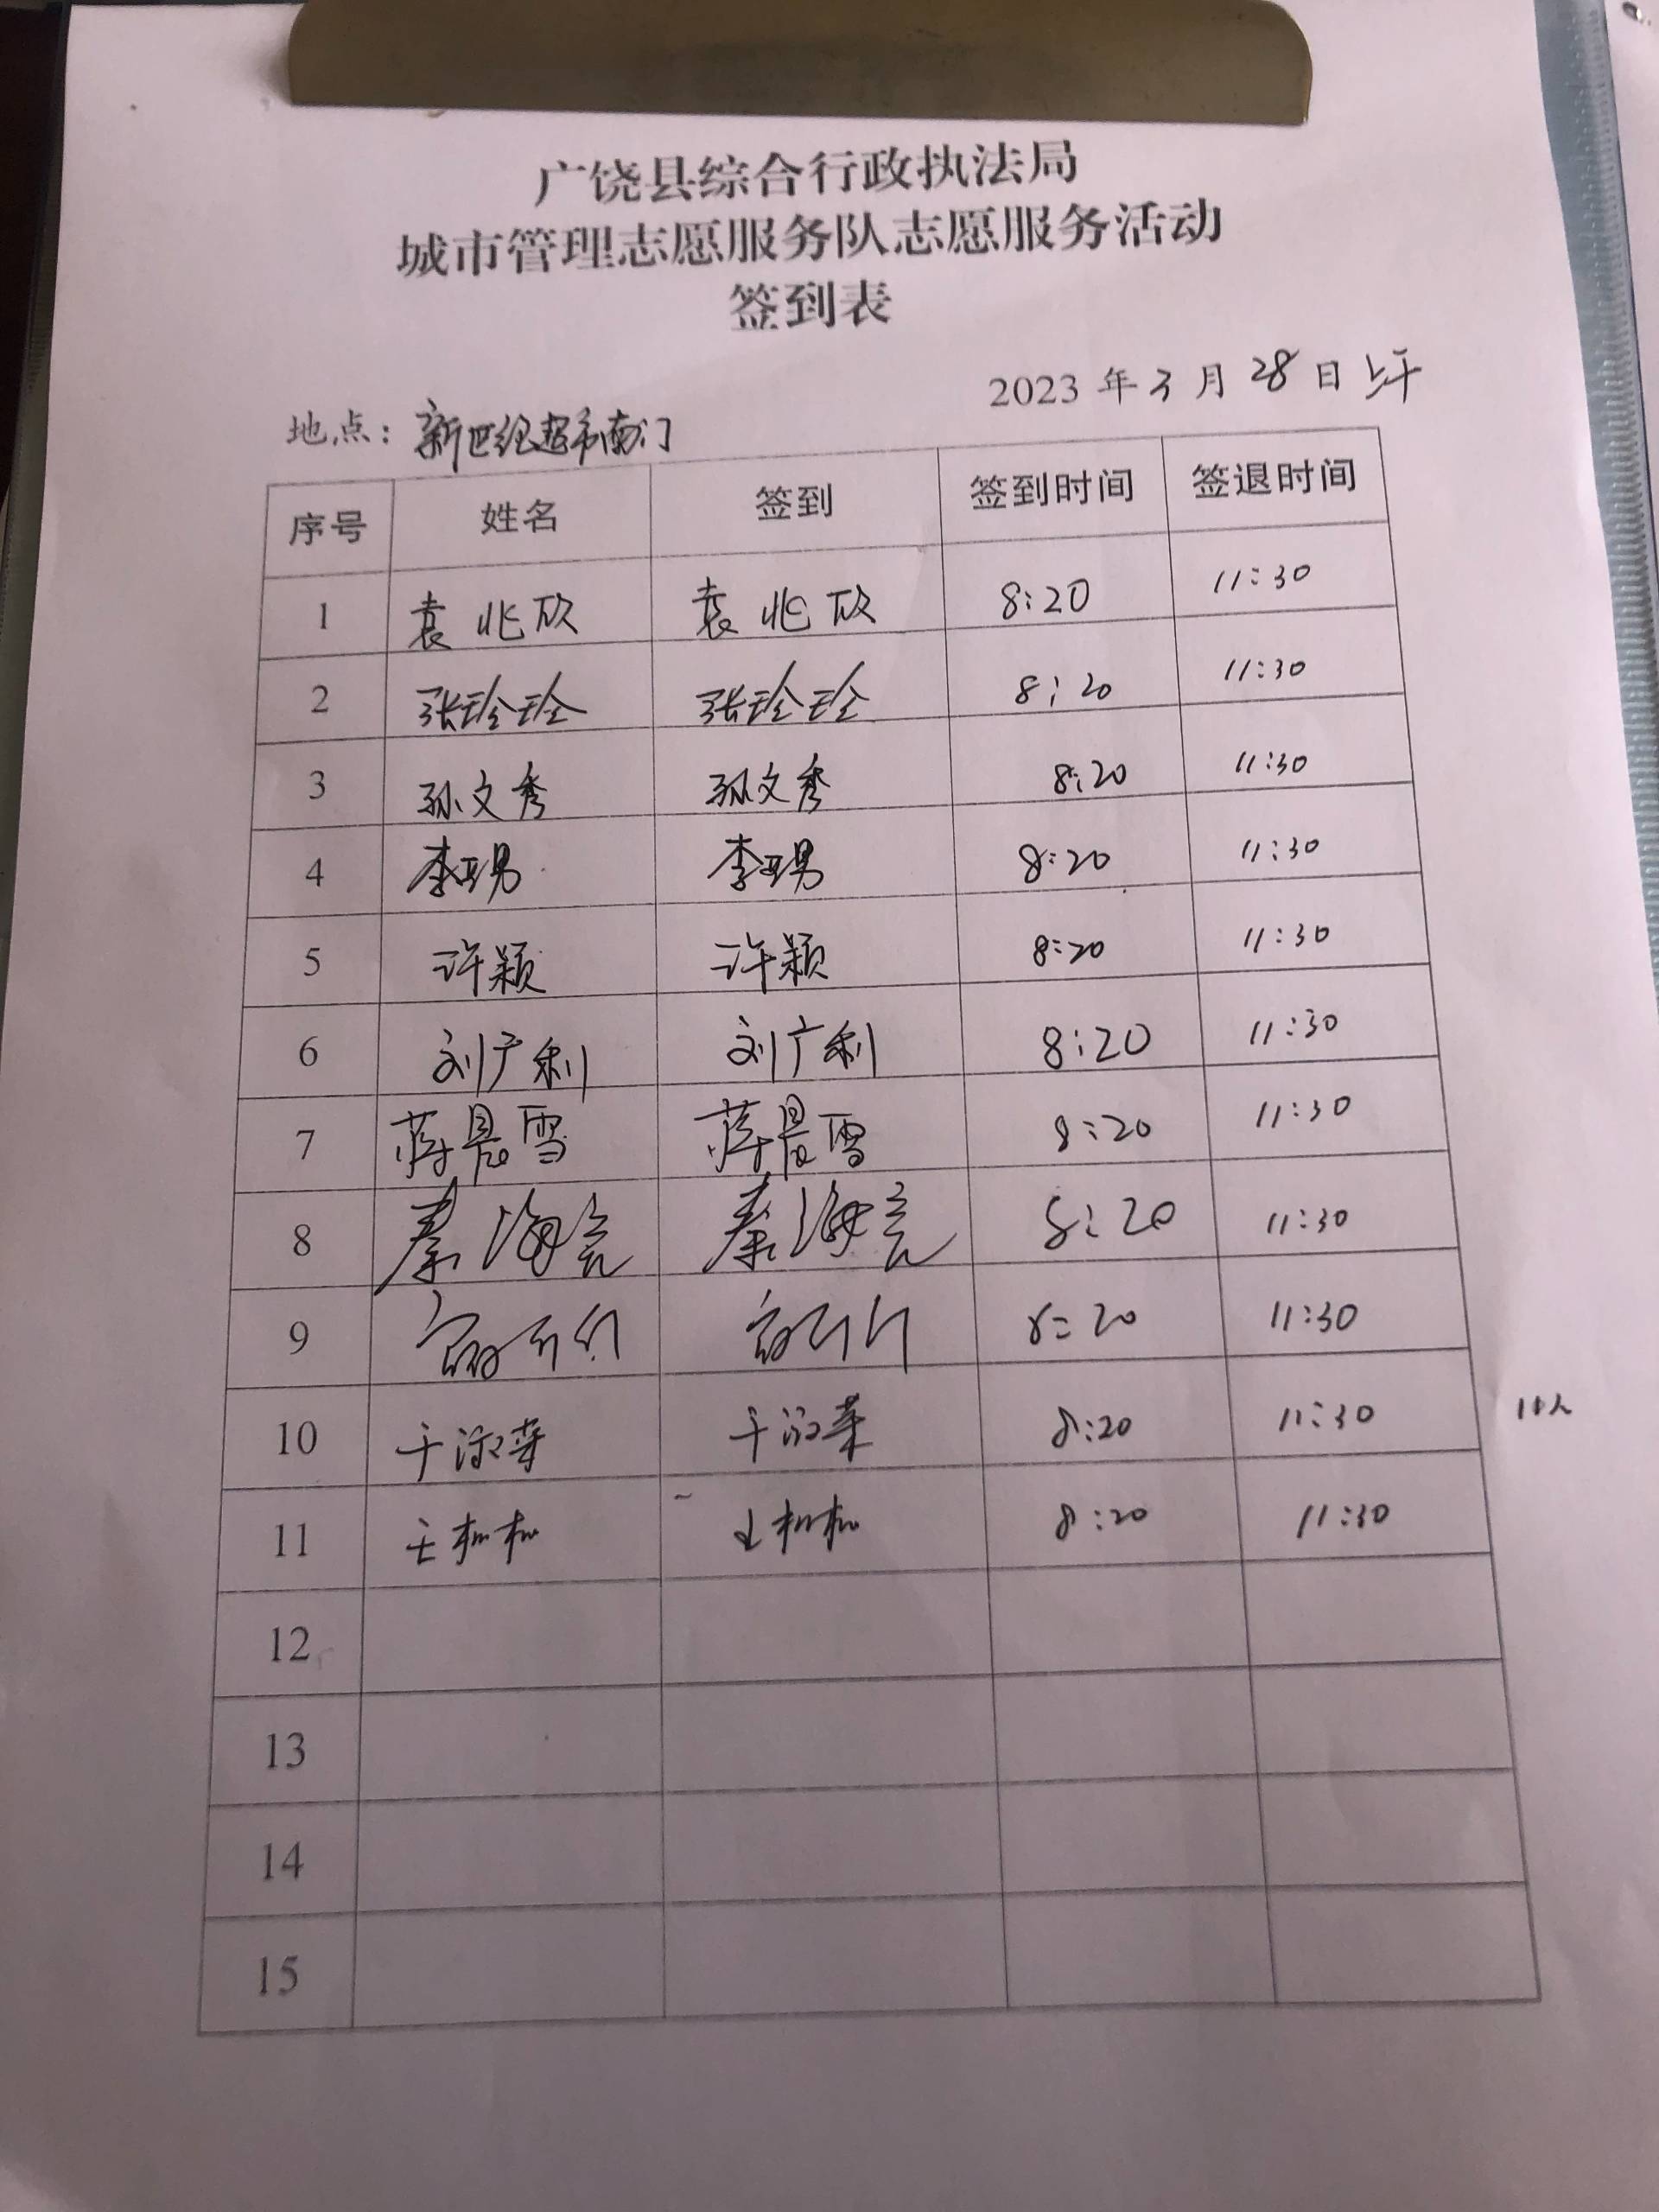 广饶县综合行政执法局
城市管理志愿服务队志愿服务活动
签到表
2023 年 3 月 28 日 上午
地点：新世纪超市南门
序号 姓名 签到 签到时间 签退时间
1 袁兆欣 袁兆欣 8:20 11:30
2 张玲玲 张玲玲 8:20 11:30
3 孙文秀 孙文秀 8:20 11:30
4 李亚男 李亚男 8:20 11:30
5 许颖 许颖 8:20 11:30
6 刘广利 刘广利 8:20 11:30
7 蒋晨雪 蒋晨雪 8:20 11:30
8 秦海亮 秦海亮 8:20 11:30
9 8:20 11:30
10 8:20 11:30
11 8:20 11:30
12
13
14
15